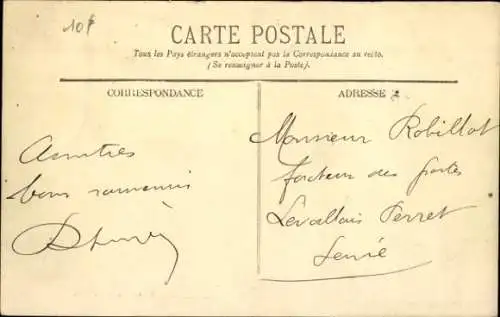 10f
CARTE POSTALE
Tous les Pays étrangers n'acceptent pas la Correspondance au recto.
(Se renseigner à la Poste).
CORRESPONDANCE
ADRESSE
Amitiés
bons souvenirs
Monsieur Robillot
facteur des postes
Levallois Perret
Seine